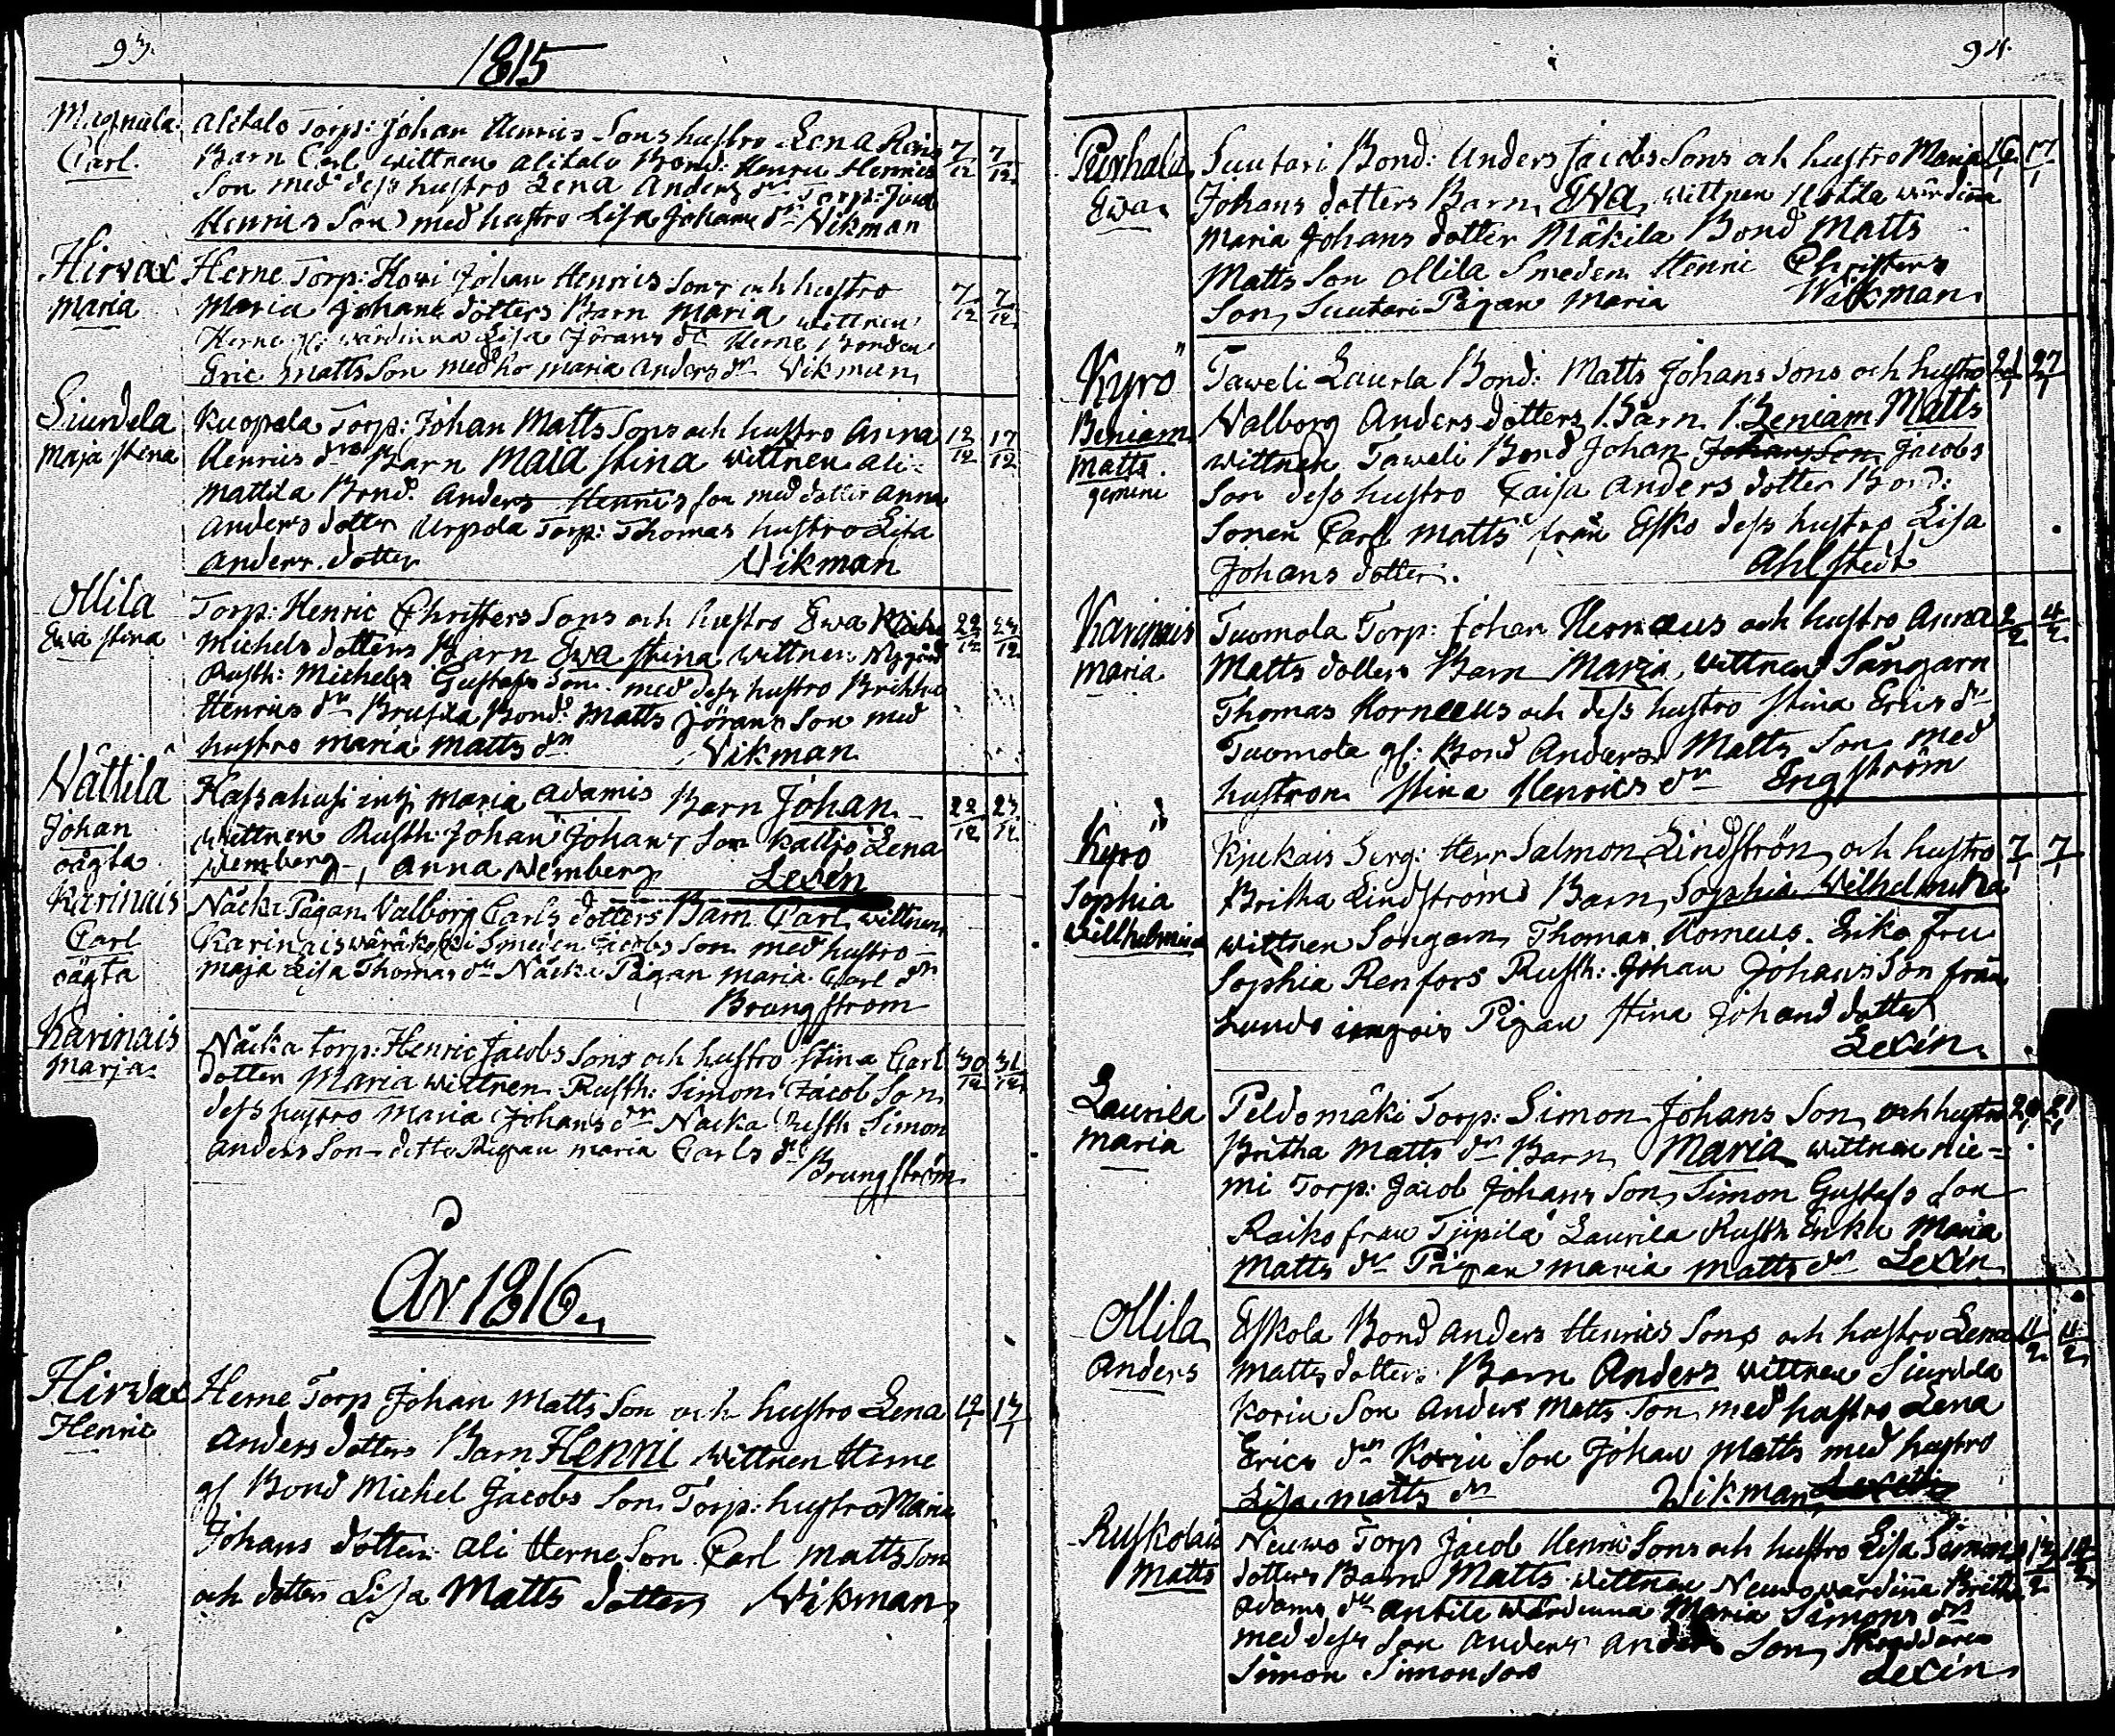 93.
1815
Magnula
Carl.
Alitalo Torp: Johan Henrics Sons hustro Lena
Barn Carl wittnen Alitalo Bond: Henric Henrics
Son med dess hustro Lena Anders dr Torp: Jacob
Henrics Son med hustro Lisa Johans dr Vikman
7/12 7/12
Hirvax
Maria
Herne Torp: Johan Henrics Sons och hustro
Maria Johans dotters Barn Maria wittnen
Herne gl: wärdinna Lisa Jörans dr Herne Bonden
Eric Matts Son med ho Maria Anders dr Vikman
7/12 7/12
Siurdela
Maja Stina
Kuopela Torp: Johan Matts Sons och hustro Anna
Henrics drs Barn Maia Stina wittnen Ali-
Mattila Bond. Anders Henrics Son med dotter Anna
Anders dotter Urpola Torp: Thomas hustro Lisa
Anders dotter Vikman
12/12 17/12
Ollila
Ewa Stina
Torp: Henric Christers Sons och hustro Ewa
Michels dotters Barn Ewa Stina wittnen
Rusth: Michels Gustafs Son med dess hustro Brittha
Henrics dr Brusila Bond: Matts Jörans Son med
hustro Maria Matts dr Vikman
22/12 23/12
Wättilä
Johan
oägta
inhj Maria Adamis Barn Johan
wittnen Rusth: Johan Johans Son Lena
Wemberg, Anna Wemberg Lexén
22/12 23/12
Karinais
Carl
oägta
Näcki Pigan Valborg Carls dotters Barn Carl wittnen
Karinais Smeden Jacobs Son med hustro
Maja Lisa Thomas dr Näcki Pigan Maria Carl dr
Brungström
Karinais
Marja
Näcka Torp: Henric Jacobs Sons och hustro Stina Carl
dotter Maria wittnen Rusth: Simon Jacob Son
dess hustro Maria Johans dr Nacka Rusth Simon
Anders Son ditto Pigan Maria Carls dr
Brungström
30/12 31/12
År 1816
Hirvax
Henric
Herne Torp Johan Matts Son och hustro Lena
Anders dotters Barn Henric wittnen Herne
gl Bond Michel Jacobs Son Torp: hustro Maria
Johans dotter Ali Herne Son Carl Matts Son
och dotter Lisa Matts dotter Vikman
12/1 13/1
94.
Ewa
Suutari Bond: Anders Jacobs Sons och hustro Maria
Johans dotters Barn Ewa wittnen wärdinna
Maria Johans dotter Mäkila Bond Matts
Matts Son Ollila Smeden Henric Christers
Son, Suutari Pigan Maria Wikman
16/1 17/1
Kyrö
Beniam
Matts.
gemini
Taweli Laurla Bond: Matts Johans Sons och hustro
Valborg Anders dotters Barn Beniam Matts
wittnen Taweli Bond Johan Johans Son Jacobs
Son dess hustro Caisa Anders dotter Bond:
Sonen Carl Matts från Esko dess hustro Lisa
Johans dotter. Ahlstedt
Karinais
Maria
Tuomola Torp: Johan Hornæus och hustro Anna
Matts dotters Barn Maria, wittnen Sångarn
Thomas Kornæus och dess hustro Stina Erics dr
Tuomola gl: Bond Anders Matts Son med
hustron Stina Henrics dr Engström
2/2 4/2
Kyrö
Sophia
Willhelmina
Serg: Herr Salmon Lindström och hustro
Britha Lindströms Barn Sophia Wilhelmina
wittnen Songarn Thomas Korneus. Enke fru
Sophia Renfors Rusth: Johan Johans Son från
Lundo Pigan Stina Johans dotter
Lexén
7/1 7/1
Laurila
Maria
Peldomäki Torp: Simon Johans Son och hustro
Britha Matts dr Barn Maria wittnen Nie-
mi Torp: Jacob Johans Son, Simon Gustafs Son
Raiko från Laurila Rusth Enka Maria
Matts dr Pigan Maria Matts dr Lexén
Ollila
Anders
Eskola Bond Anders Henrics Sons och hustro Lena
Matts dotters Barn Anders wittnen Siurdela
Korin Son Anders Matts Son med hustro Lena
Erics dr Korin Son Johan Matts med hustro
Lisa Matts dr Wikman Lexén
11/2 11/2
Ruskolais
Matts
Neuwo Torp Jacob Henric Sons och hustro Lisa Simons
dotters Barn Matts wittnen Neuwo wärdinna Britha
Adams dr Antila wärdinna Maria Simons dr
med dess Son Anders Anders Son, Skräddaren
Simon Simonson Lexén